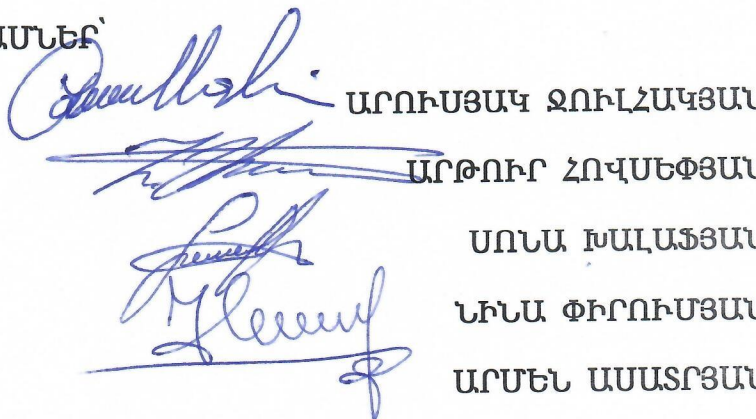 ԱՄՆԵՐ՝
ԱՐՈՒՍՅԱԿ ՋՈՒԼՀԱԿՅԱՆ
ԱՐԹՈՒՐ ՀՈՎՍԵՓՅԱՆ
ՍՈՆԱ ԽԱԼԱՖՅԱՆ
ՆԻՆԱ ՓԻՐՈՒՄՅԱՆ
ԱՐՄԵՆ ԱՍԱՏՐՅԱՆ